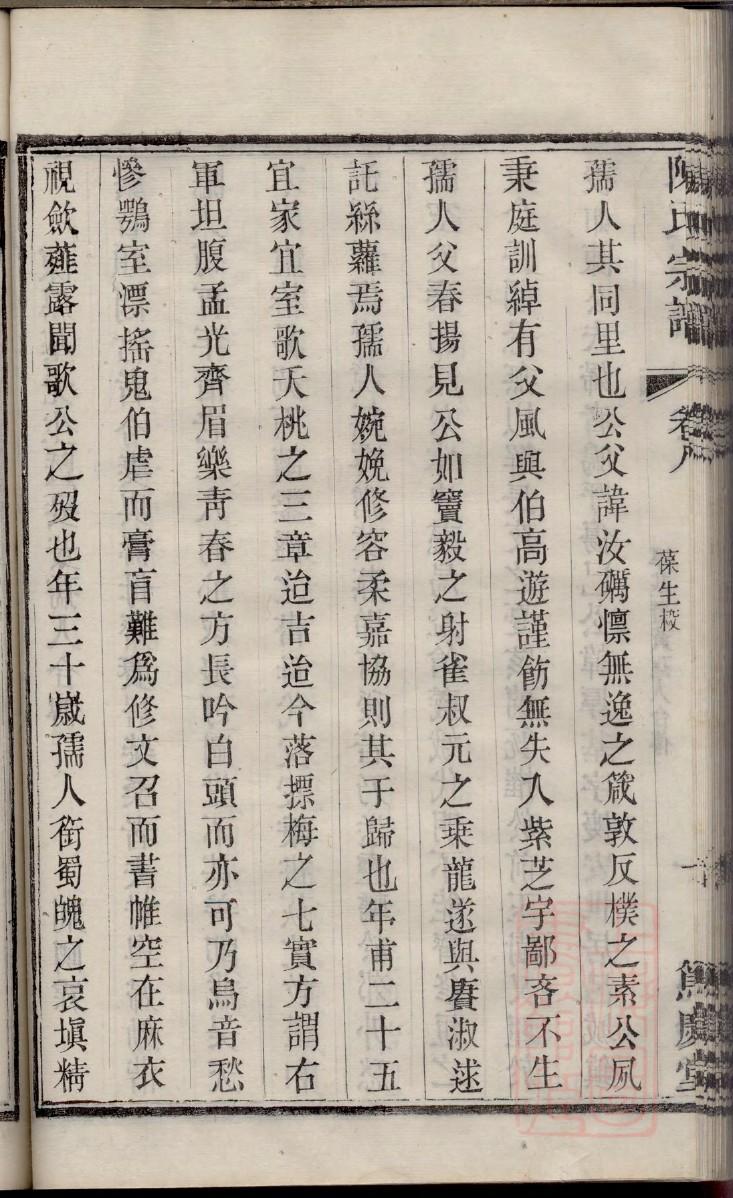 陳氏宗譜 卷八
葆生校
孺人其同里也公父諱汝礪懍無逸之箴敦反樸之素公夙
秉庭訓綽有父風與伯高遊謹飭無失入紫芝宇鄙吝不生
孺人父春揚見公如竇毅之射雀叔元之乘龍遂與賡淑逑
託絲蘿焉孺人婉娩修容柔嘉協則其于歸也年甫二十五
宜家宜室歌夭桃之三章迨吉迨今落摽梅之七實方謂右
軍坦腹孟光齊眉樂靑春之方長吟白頭而亦可乃烏音愁
慘鵶室漂搖鬼伯虐而膏肓難爲修文召而書帷空在麻衣
視歛薤露聞歌公之歿也年三十歲孺人銜蜀魄之哀塡精